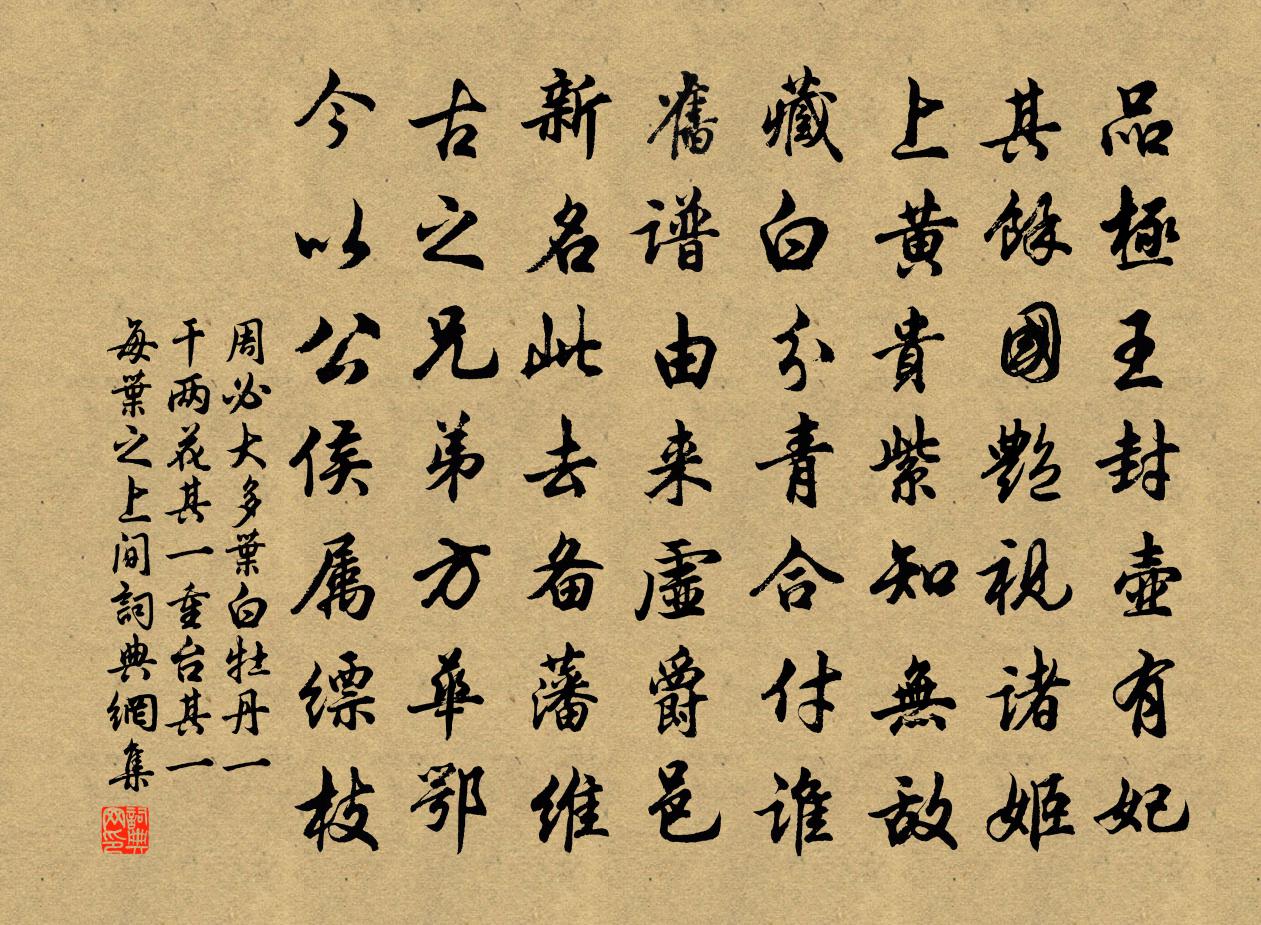 品極王封壺有妃
其餘國艷視諸姬
上黃貴紫知無敌
藏白分青合付谁
舊谱由来虛爵邑
新名此去备藩維
古之兄弟方華鄂
今以公侯属缥枝
周必大多葉白牡丹一
干两花其一重台其一
每葉之上间詞典網集
詞典网印